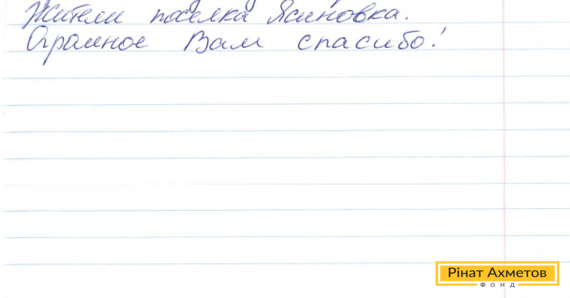 Жители поселка Ясиновка.
Огромное Вам спасибо!
Рінат Ахметов
ФОНД